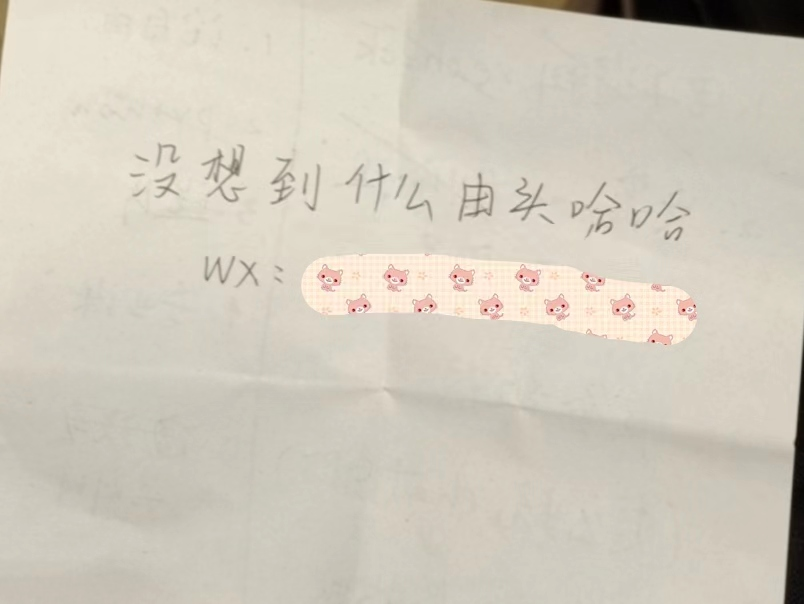 没想到什么由头哈哈
WX: